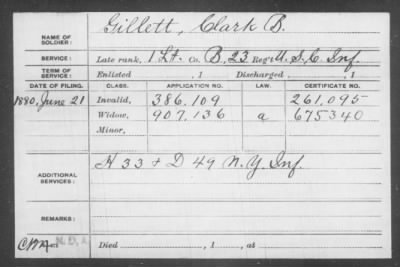 NAME OF SOLDIER: Gillett, Clark B.
SERVICE: Late rank, 1 Lt. Co. B, 23 Reg't U.S.C. Inf.
TERM OF SERVICE: Enlisted , 1 Discharged , 1
DATE OF FILING. CLASS. APPLICATION NO. LAW. CERTIFICATE NO.
1880, June 21 Invalid, 386.109 261.095
Widow, 907.136 a 675340
Minor,
ADDITIONAL SERVICES: H 33 + D 49 N.Y. Inf.
REMARKS:
Died , 1 , at